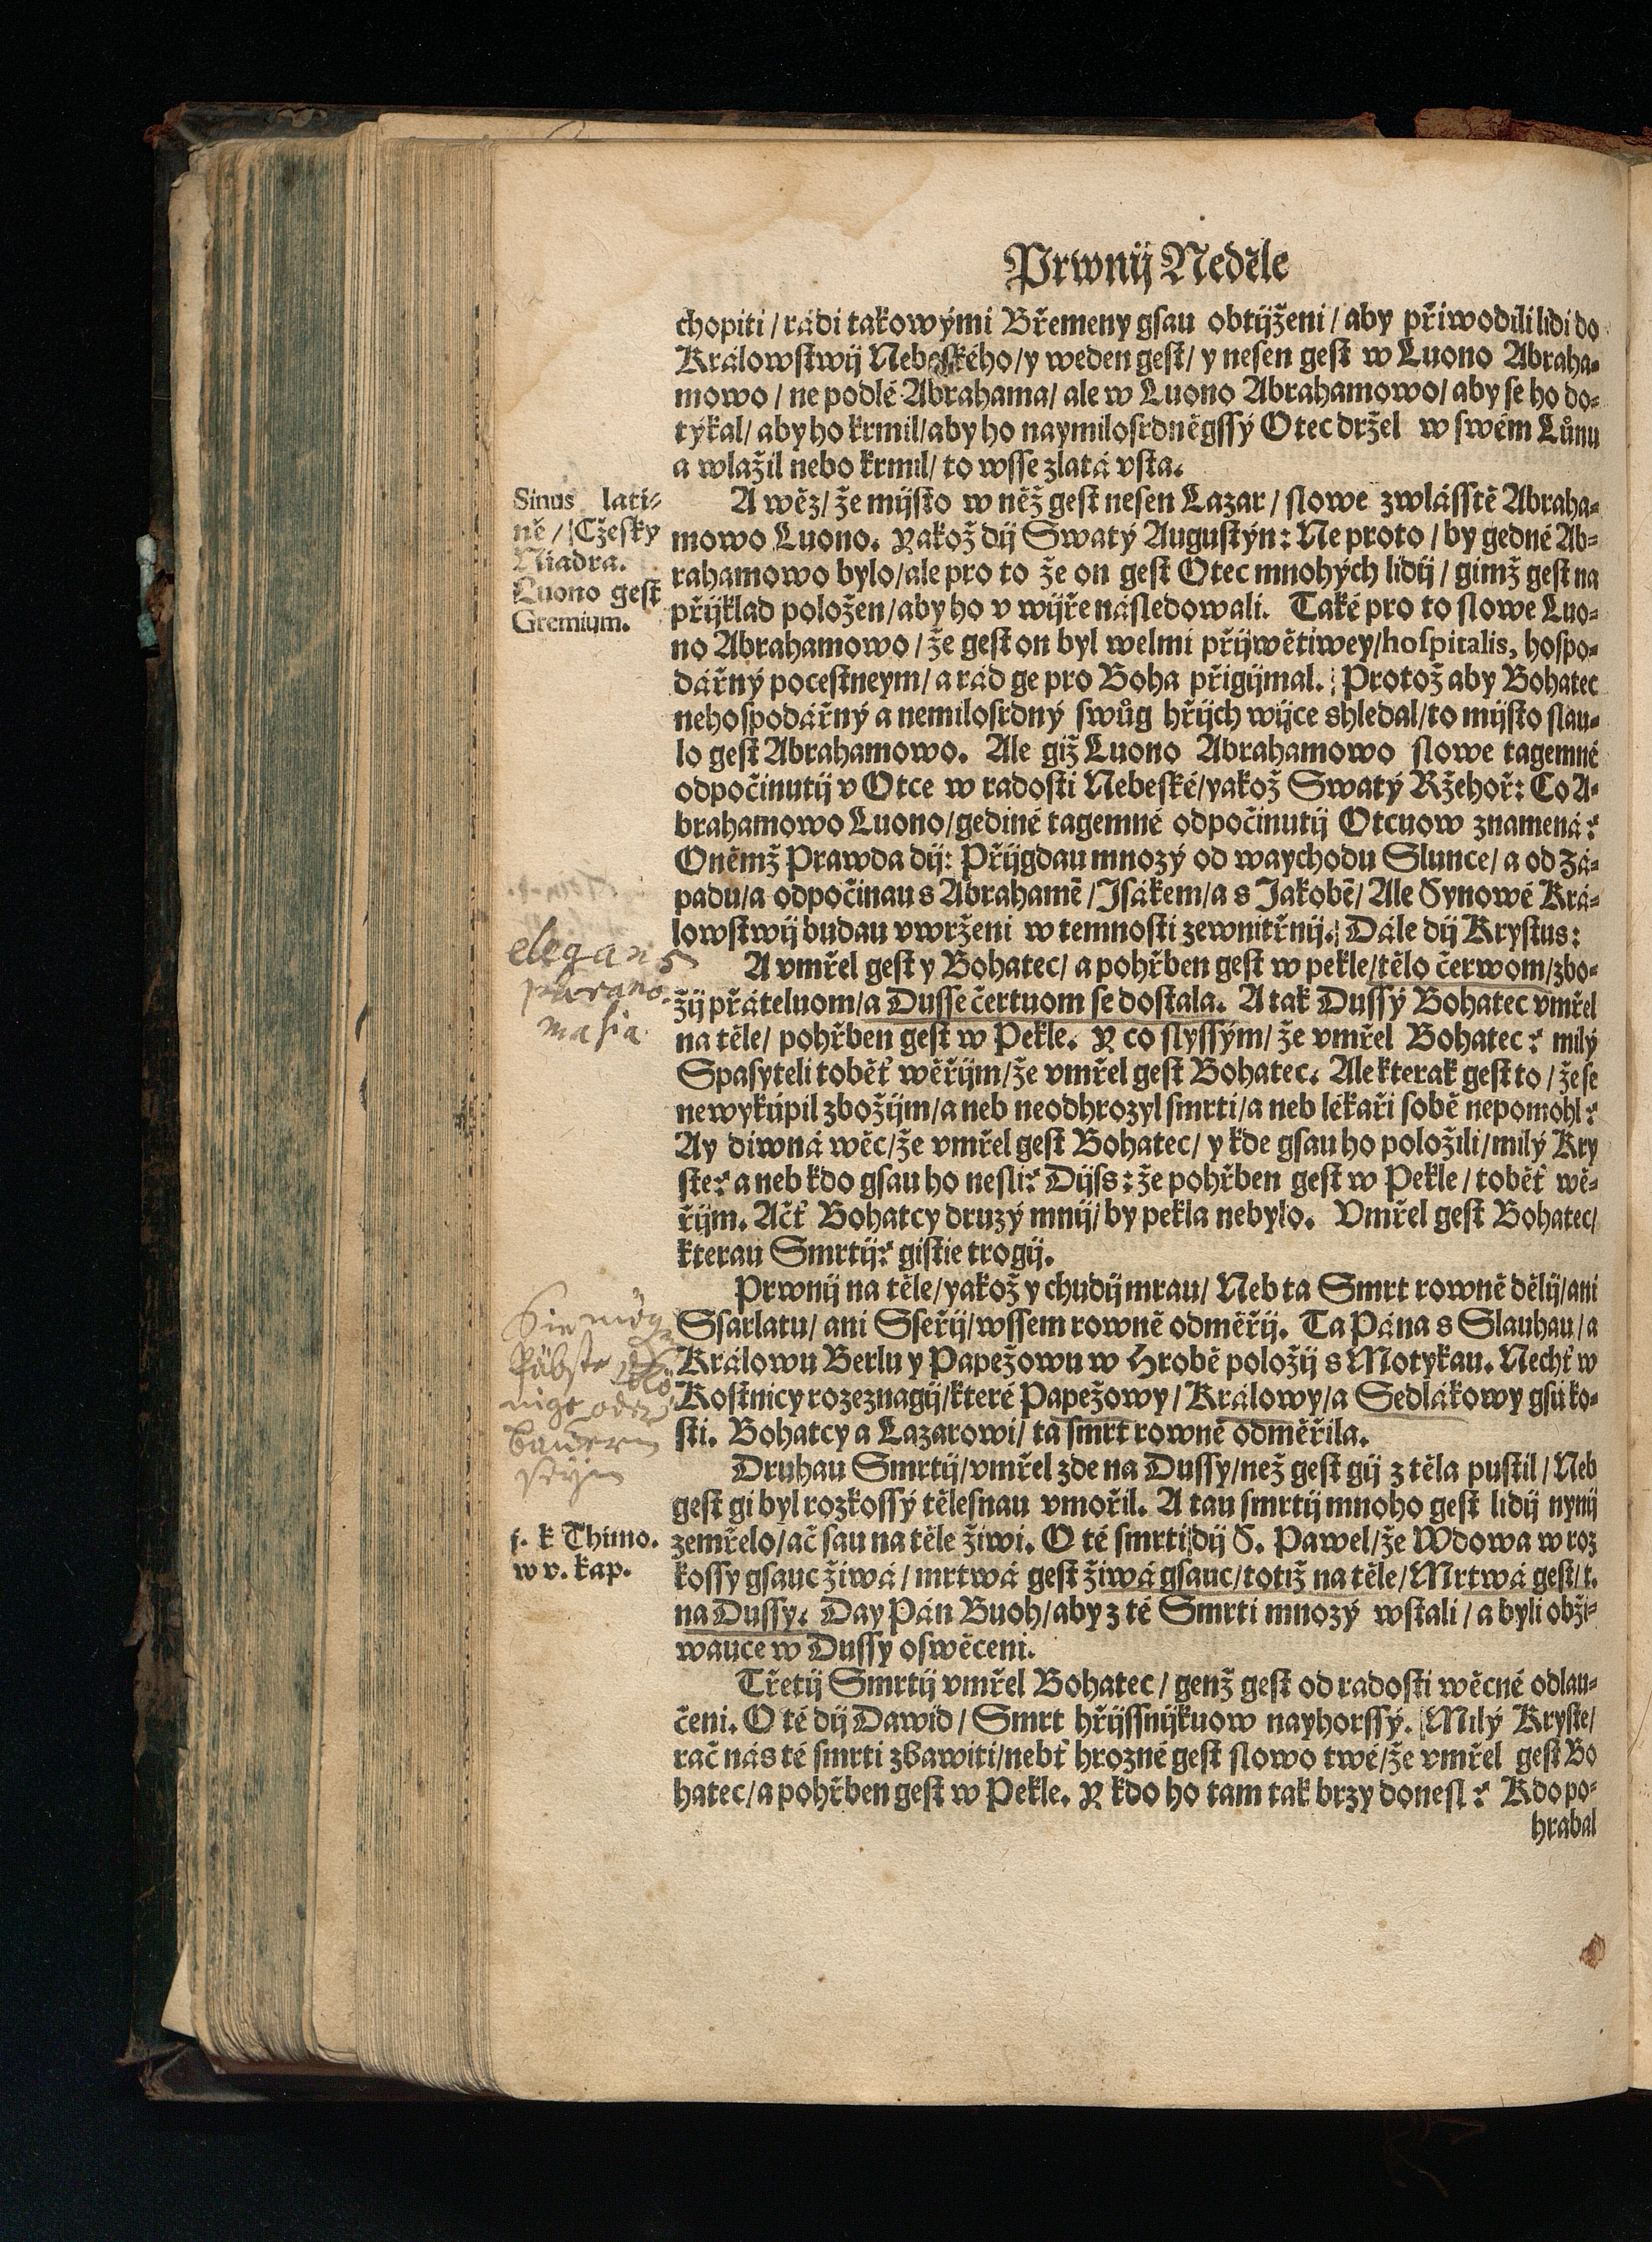 Prwnij Neděle
chopiti / rádi takowými Břemeny gsau obtijženi / aby přiwodili lidi do
Králowstwij Nebeského / y weden gest / y nesen gest w Luono Abraha-
mowo / ne podlé Abrahama / ale w Luono Abrahamowo / aby se ho do-
týkal / aby ho krmil / aby ho naymilosrdněgssý Otec držel w swém Lůnu
a wlažil nebo krmil / to wsse zlatá vsta.
Sinus lati-
ně / Cžesky
Niadra.
Luono gest
Gremium.
A wěz / že mijsto w něž gest nesen Lazar / slowe zwlásstě Abraha-
mowo Luono. Yakož dij Swatý Augustýn: Ne proto / by gedné Ab-
rahamowo bylo / ale pro to že on gest Otec mnohých lidij / gimž gest na
přijklad položen / aby ho v wijře následowali. Také pro to slowe Luo-
no Abrahamowo / že gest on byl welmi přijwětiwey / hospitalis, hospo-
dářný pocestneym / a rád ge pro Boha přigijmal. Protož aby Bohatec
nehospodářný a nemilosrdný swůg hřijch wijce shledal / to mijsto slau-
lo gest Abrahamowo. Ale giž Luono Abrahamowo slowe tagemné
odpočinutij v Otce w radosti Nebeské / yakož Swatý Ržehoř: Co A-
brahamowo Luono / gediné tagemné odpočinutij Otcuow znamená?
O němž Prawda dij: Přijgdau mnozý od waychodu Slunce / a od zá-
padu / a odpočinau s Abrahamē / Isákem / a s Jakobē / Ale Synowé Krá-
lowstwij budau vwrženi w temnosti zewnitřnij. Dále dij Krystus:
elegans
parano-
masia
A vmřel gest y Bohatec / a pohřben gest w pekle / tělo červom / zbo-
žij přáteluom / a Dusse čertuom se dostala. A tak Dussý Bohatec vmřel
na těle / pohřben gest w Pekle. Y co slyssým / že vmřel Bohatec? milý
Spasyteli toběť wěřijm / že vmřel gest Bohatec. Ale kterak gest to / že se
newykúpil zbožijm / a neb neodhrozyl smrti / a neb lékaři sobě nepomohl?
Ay diwná wěc / že vmřel gest Bohatec / y kde gsau ho položili / milý Kry
ste? a neb kdo gsau ho nesli? Dijs: že pohřben gest w Pekle / toběť wě-
řijm. Ačť Bohatcy druzý mnij / by pekla nebylo. Vmřel gest Bohatec /
kterau Smrtij? gistie trogij.
Prwnij na těle / yakož y chudij mrau / Neb ta Smrt rowně dělij / ani
Ssarlatu / ani Sseřij / wssem rowně odměřij. Ta Pána s Slauhau / a
Králowu Berlu y Papežowu w Hrobě položij s Motykau. Nechť w
Kostnicy rozeznagij / které Papežowy / Králowy / a Sedlákowy gsú ko-
sti. Bohatcy a Lazarowi / ta smrt rowně odměřila.
Päbste
oder
bawern
seyn
Druhau Smrtij / vmřel zde na Dussy / než gest gij z těla pustil / Neb
gest gi byl rozkossý tělesnau vmořil. A tau smrtij mnoho gest lidij nynij
zemřelo / ač sau na těle žiwi. O té smrti dij S. Pawel / že Wdowa w roz
kossy gsauc žiwá / mrtwá gest žiwá gsauc / totiž na těle / Mrtwá gest / t.
na Dussy. Day Pán Buoh / aby z té Smrti mnozý wstali / a byli obži-
wauce w Dussy oswěceni.
k Thimo.
w v. kap.
Třetij Smrtij vmřel Bohatec / genž gest od radosti wěcné odlau-
čeni. O té dij Dawid / Smrt hřijssnijkuow nayhorssý. Milý Kryste /
rač nás té smrti zbawiti / nebť hrozné gest slowo twé / že vmřel gest Bo
hatec / a pohřben gest w Pekle. Y kdo ho tam tak brzy donesl? Kdo po-
hrabal